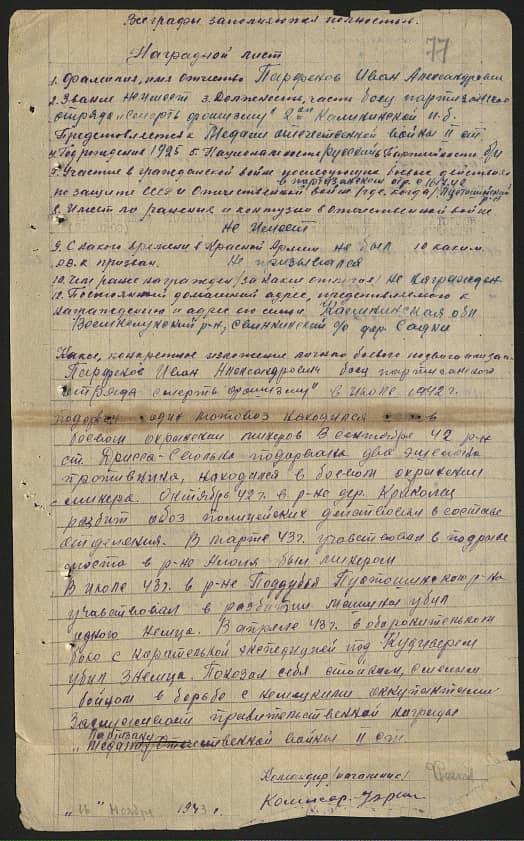 Все графы заполняются полностью.
77
Наградной лист
1. Фамилия, имя отчество Парфенов Иван Александрович
2. Звание не имеет 3. Должность, часть боец партизанского
отряда "Смерть фашизму" 2ой Калининской п.б.
Представляется к Медали отечественной войны II ст
4. Год рождения 1925 5. Национальность русский Партийность б/п
7. Участие в гражданской войне последующих боевых действиях
в партизанском отр. с
по защите СССР и Отечественной войне (где, когда) Пустошкинский
р-н
8. Имеет ли ранения и контузии в отечественной войне
не имеет
9. С какого времени в Красной Армии не был 10 каким
РВ-к призван. Не призывался
10. Чем ранее награжден (за какие отличия) не награжден
12. Постоянный домашний адрес, представляемого к
награждению и адрес его семьи. Калининская обл
Великолукский р-н, с/с дер. Садки
Краткое, конкретное изложение личного боевого подвига
Парфенов Иван Александрович боец партизанского
отряда смерть "фашизму" в июле 1942 г.
подорван один мотовоз находился в
боевом охранении пикеров В сентябре 42 р-не
ст. Дрисса-Свольна подорваны два эшелона
противника, находился в боевом охранении
пикера. Октябрь 42 г. в р-не дер.
разбит обоз полицейских действовал в составе
отделения. В марте 43 г. учавствовал в подрыве
моста в р-не Идоля был пикером
В июле 43 г. в р-не Поддубья Пустошкинского р-на
учавствовал в разбитии машины убил
одного немца. В апреле 43 г. в оборонительном
бою с карательной экспедицией под Кудивером
убил 3 немца. Показал себя стойким, смелым
бойцом в борьбе с немецкими оккупантами
Заслуживает правительственной награды
Партизану
"Медали Отечественной войны II ст.
Командир (начальник)
Комиссар-
"16" Ноября 1943 г.